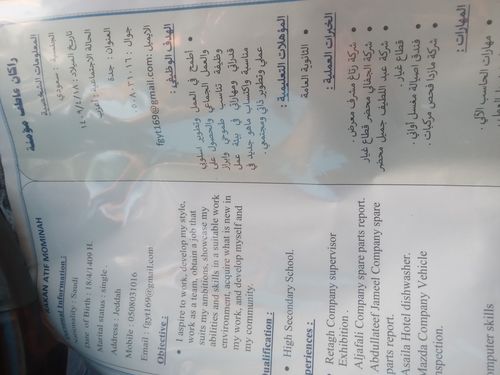 RAKAN ATIF MOMINAH
Personal Information :
Nationality : Saudi
Date of Birth : 18/4/1409 H.
Marital status : single .
Address : Jeddah
Mobile : 0508031016
Email : fgyt169@gmail.com
Objective :
• I aspire to work, develop my style,
work as a team, obtain a job that
suits my ambitions, showcase my
abilities and skills in a suitable work
environment, acquire what is new in
my work, and develop myself and
my community.
Qualification :
• High Secondary School.
Experiences :
Retagh Company supervisor
Exhibition .
Aljafali Company spare parts report.
Abdullateef Jameel Company spare
parts report.
Asaila Hotel dishwasher.
Mazda Company Vehicle
inspection.
computer skills
راكان عاطف مؤمنة
المعلومات الشخصية
الجنسية : سعودي
تاريخ الميلاد : ١٤٠٩/٤/١٨
الحالة الاجتماعية : أعزب
العنوان : جدة
جوال : ٠٥٠٨٠٣١٠١٦
الايميل : fgyt169@gmail.com
الهدف الوظيفي :
• أطمح في العمل وتطوير أسلوبي
والعمل الجماعي والحصول على
وظيفة تناسب طموحي وابراز
قدراتي ومهاراتي في بيئة عمل
مناسبة واكتساب ماهو جديد في
عملي وتطوير ذاتي ومجتمعي .
المؤهلات التعليمية :
• الثانوية العامة
الخبرات العملية :
• شركة رتاغ مشرف معرض .
• شركة الجفالي محضر قطاع غيار
• شركة عبد اللطيف جميل محضر
قطاع غيار .
• فندق اصيالة مغسل أواني .
• شركة مازدا فحص مركبات .
المهارات :
• مهارات الحاسب الآلي .